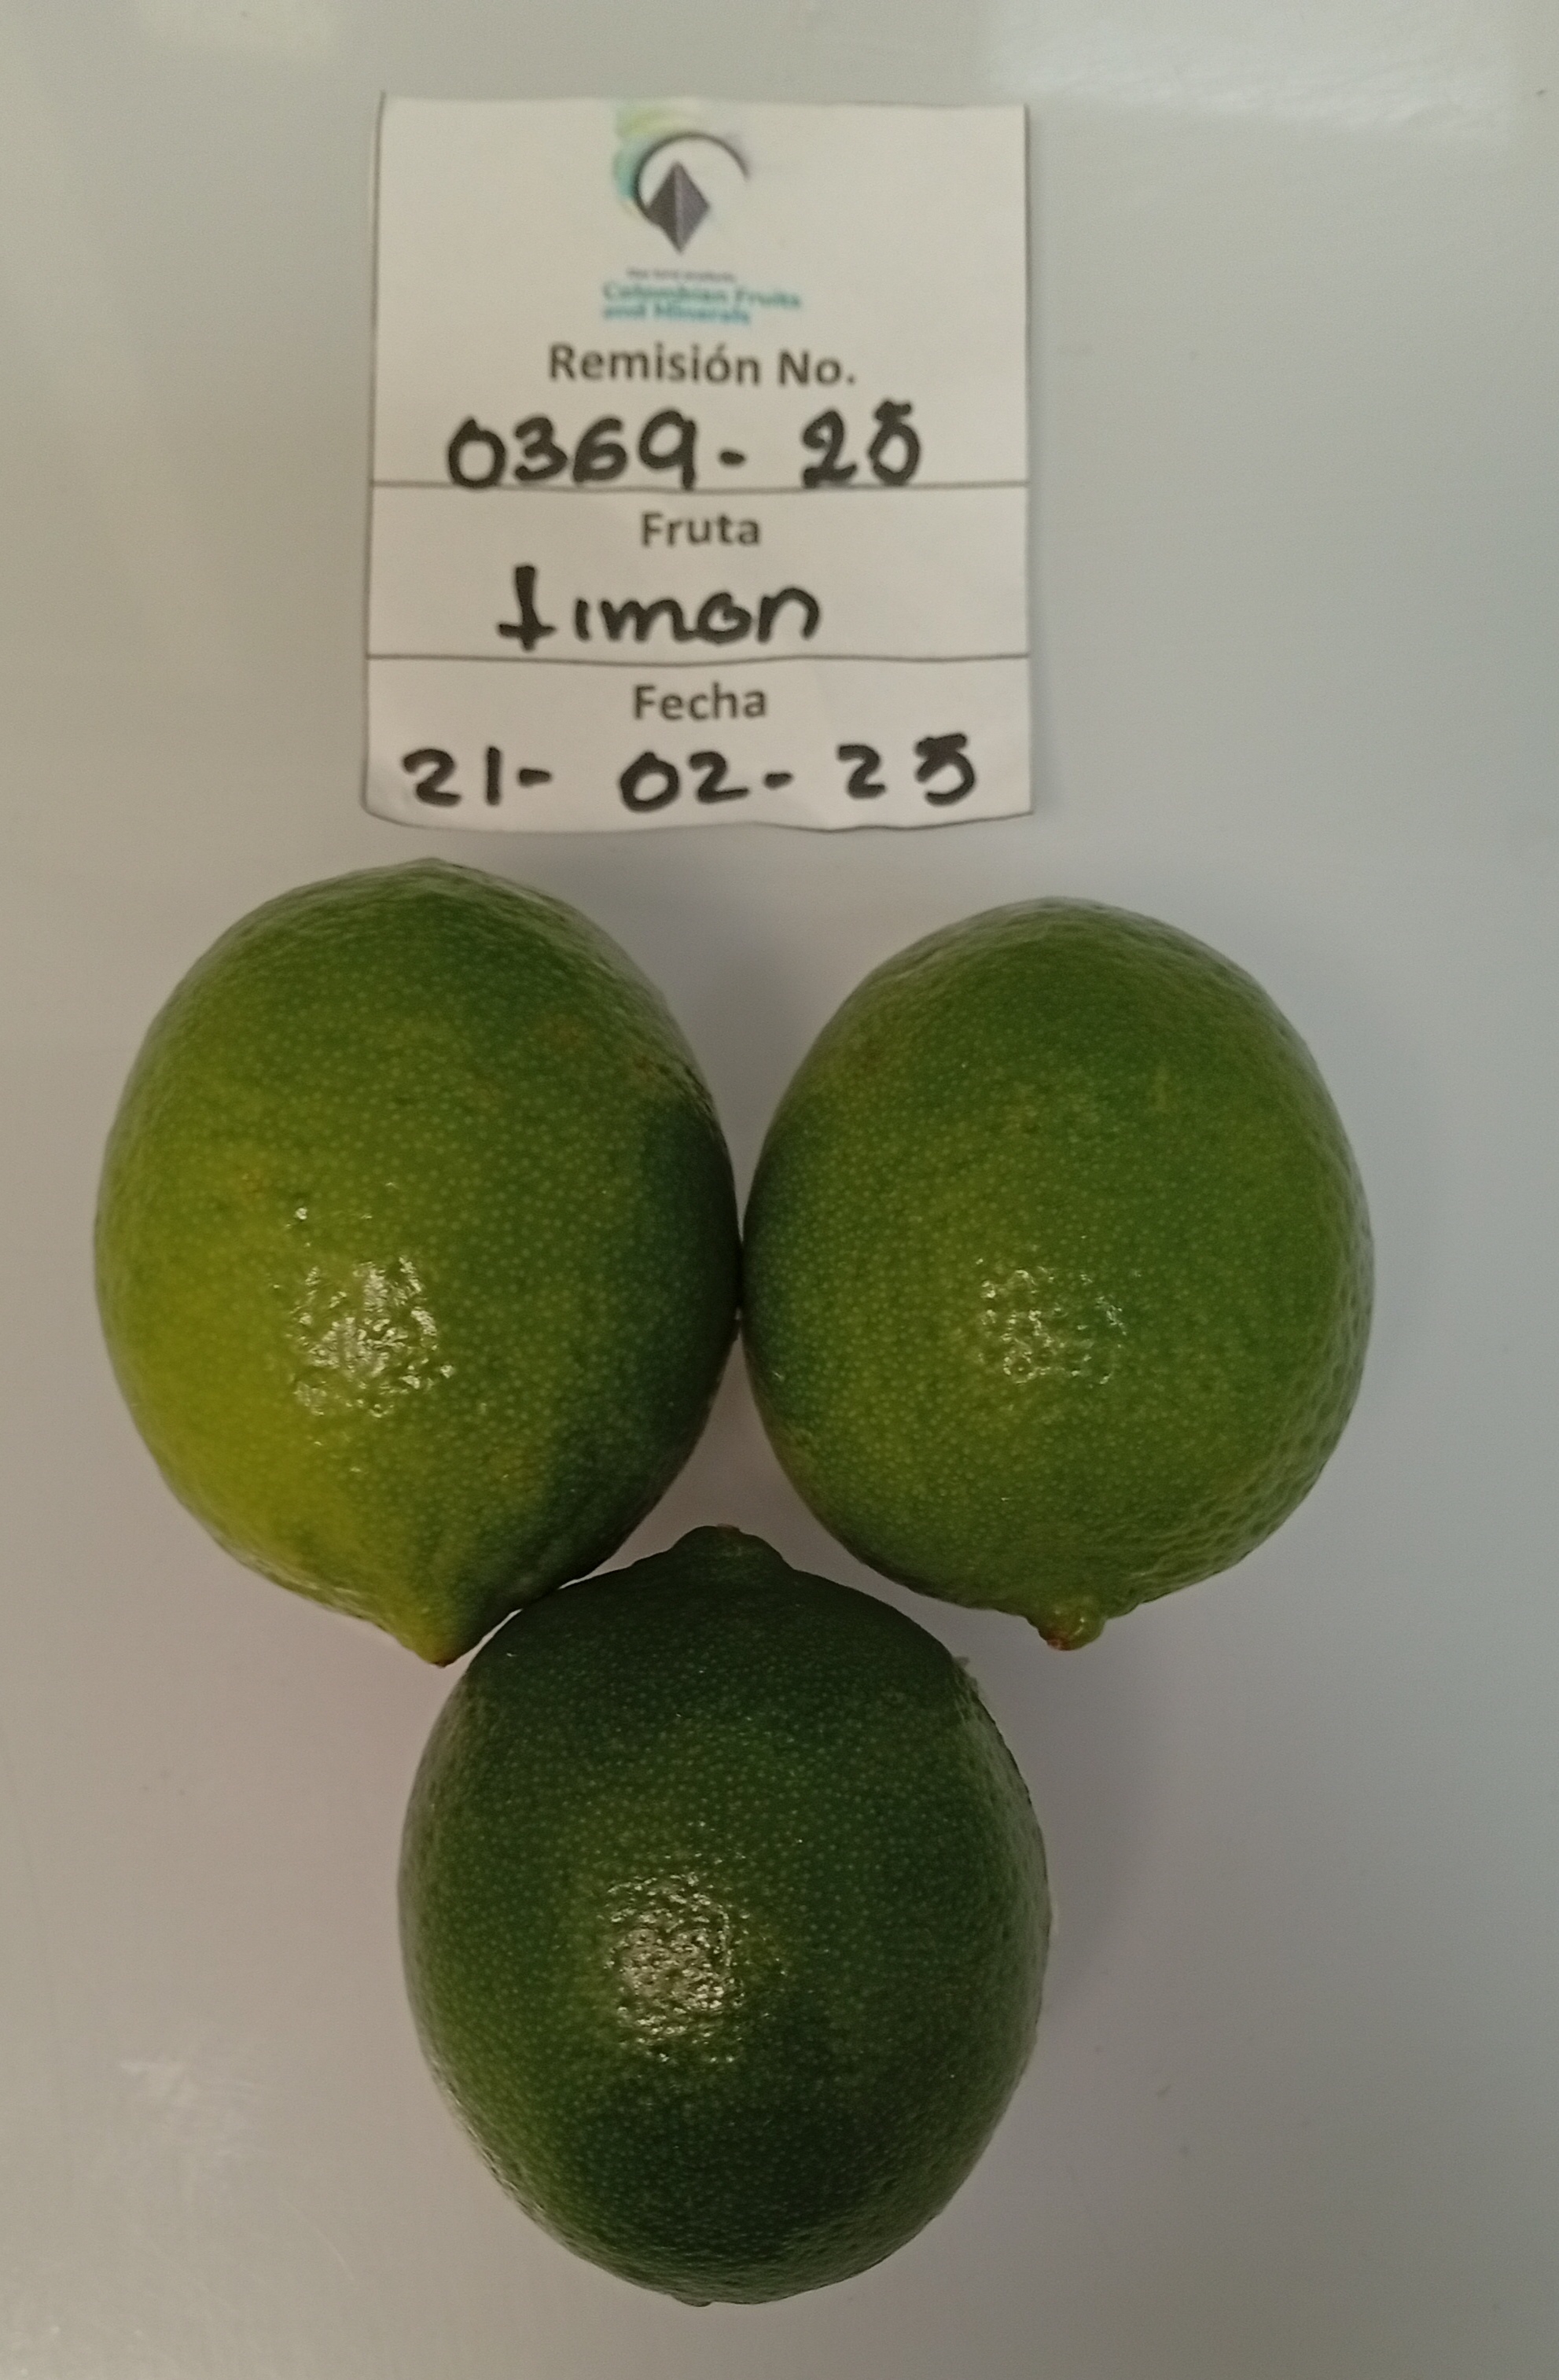 Colombian Fruits
and Minerals
Remisión No.
0369- 25
Fruta
Limon
Fecha
21- 02- 25